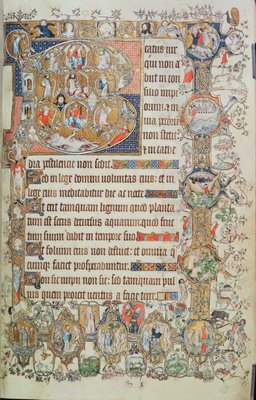 Beatus uir
qui non a
biit in con
silio impi
orum: & in
uia
non stetit:
& in cathe
dra pestilencie non sedit.
Sed in lege domini uoluntas eius: et in
lege eius meditabitur die ac nocte.
Et erit tamquam lignum quod planta
tum est secus decursus aquarum: quod fruc
tum suum dabit in tempore suo.
Et folium eius non defluet: et omnia q
cumque faciet prosperabuntur.
Non sic impii non sic: sed tamquam pul
uis quem proicit uentus a facie terre.